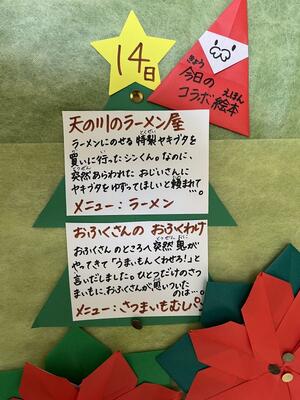 14日
きょう
今日の
コラボ絵本
えほん
天の川のラーメン屋
ラーメンにのせる特製ヤキブタを
とくせい
買いに行ったシンくん。なのに、
か
突然あらわれた おじいさんに
とつぜん
ヤキブタをゆずってほしいと頼まれて…。
たの
メニュー：ラーメン
おふくさんの おふくわけ
おふくさんのところへ突然鬼が
とつぜん おに
やってきて「うまいもんくわせろ!」と
言いだしました。ひとつだけのさつ
まいもに、おふくさんが思いついた
のは…。
メニュー：さつまいもむしパン